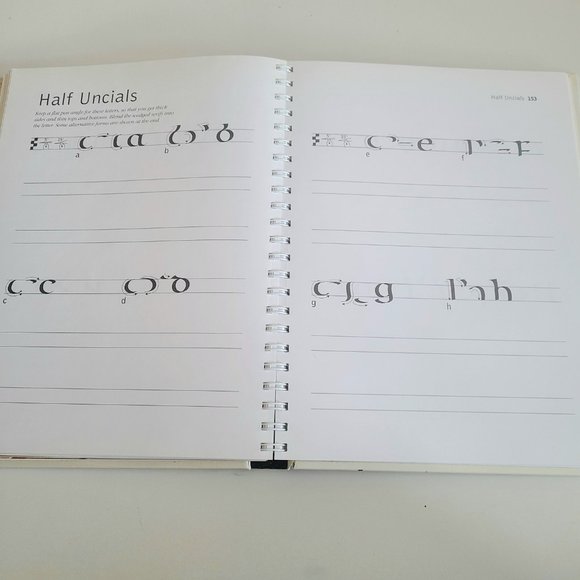 Half Uncials
Keep a flat pen angle for these letters, so that you get thick
sides and thin tops and bottoms. Blend the wedged serif into
the letter. Some alternative forms are shown at the end.
a
b
a b
c
d
c d
Half Uncials 153
e
f
e f
g
h
g h